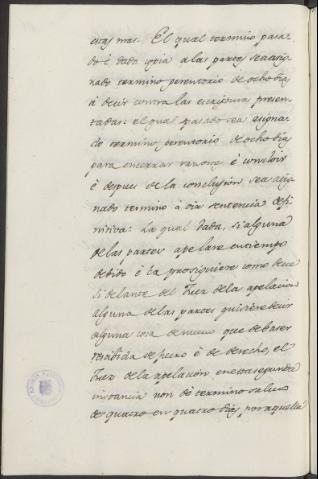 estas mas. El qual termino pasa-
do é dada copia a las partes sea asig-
nado termino perentorio de ocho dias
á decir contra las escripturas presen-
tadas: el qual pasado sea asigna-
do termino perentorio de ocho dias
para encerrar razones é concluir
é despues de la conclusion sea asig-
nado termino á oir sentencia defi-
nitiva: La qual dada, si alguna
de las partes apelare en tiempo
debido é la prosiguiere como deve
si delante del Juez de la apelacion
alguna de las partes quisiere decir
alguna cosa de nuevo que deba ser
resabida de fecho é de derecho, el
Juez de la apelacion en esta segunda
instancia non dé termino salvo
de quatro en quatro dias, por aquella